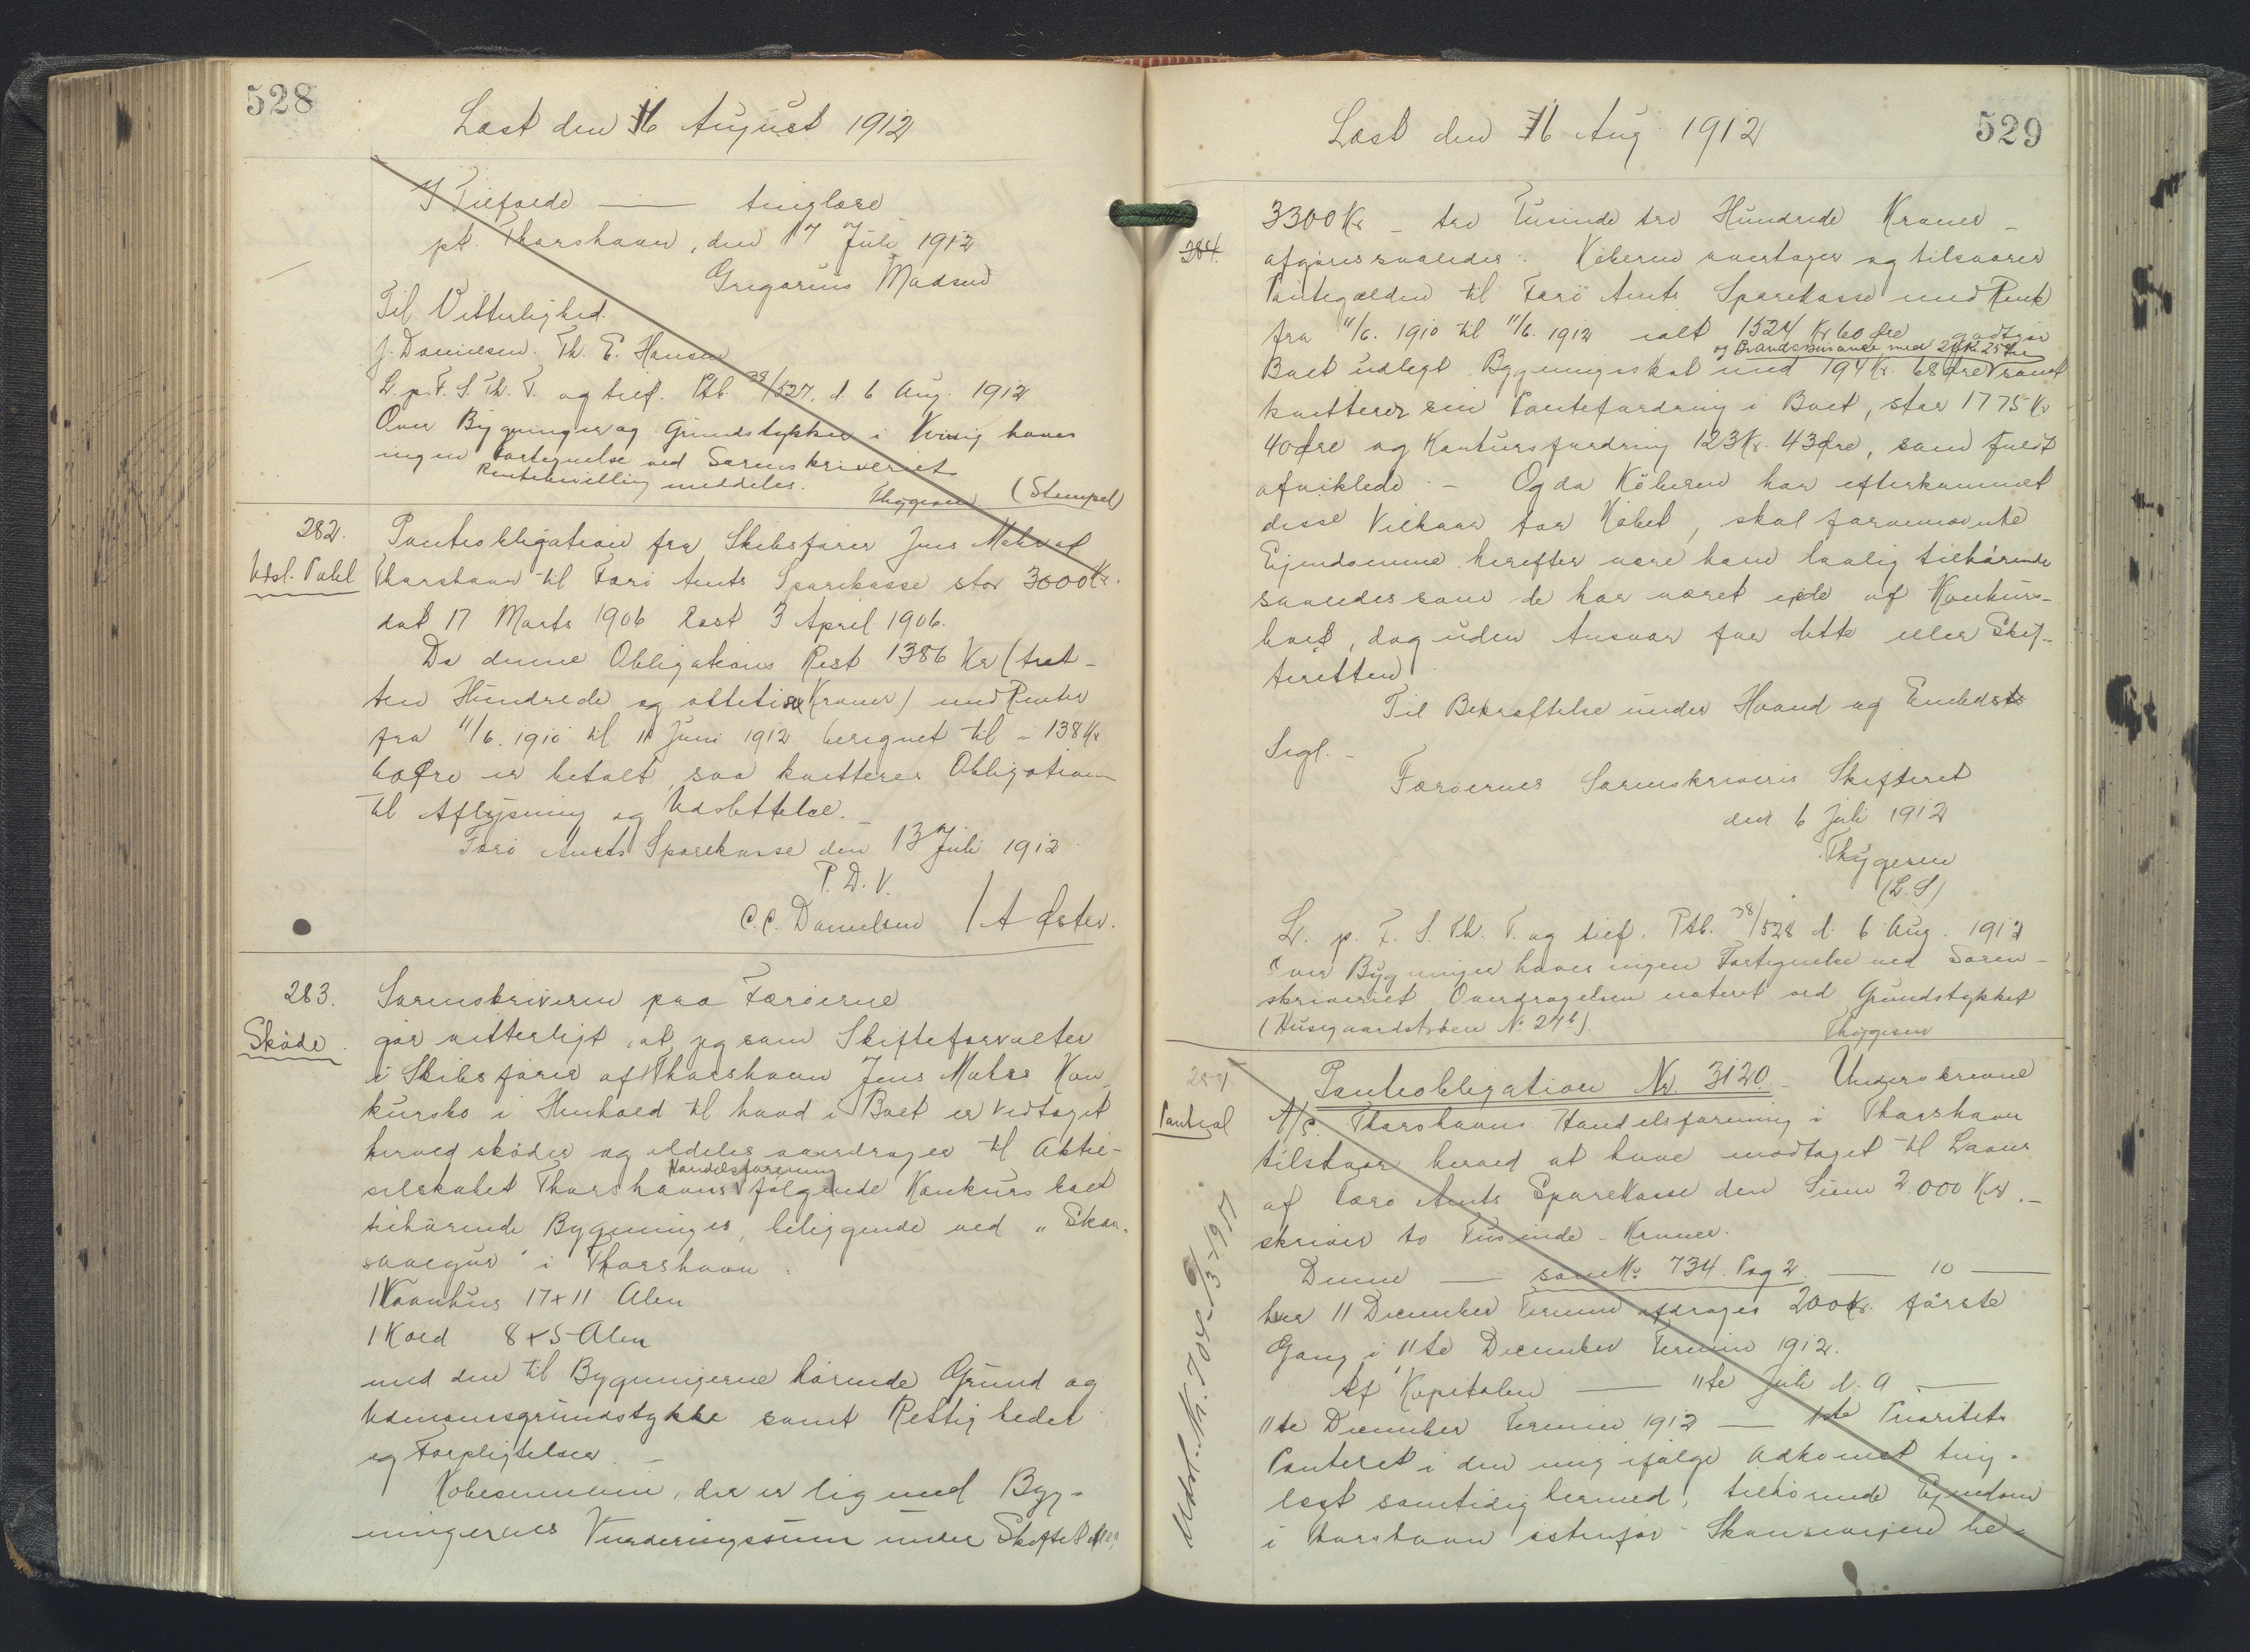 528
Læst den 16 August 1912
I Tilfælde — tinglæse
pt. Thorshavn, den 17 Juli 1912
Gregorius Madsen
Til Vitterlighed.
J. Danielsen. Th. E. Hansen
L. p. F. S. Th. T. og tilf. Ptb. 38/527, d 6 Aug. 1912
Over Bygninger og Grundstykker i Kvivig haves
ingen Fortegnelse ved Sorenskriveriet
meddeles.
Thygesen (Stempel)
282.
Udsl. Pakl
Panteobligation fra Skibsfører Jens Mohr af
Thorshavn til Færö Amts Sparekasse stor 3000 Kr.
dat 17 Marts 1906 læst 3 April 1906.
Da denne Obligations Rest 1386 Kr (tret-
ten Hundrede og ottetisex Kroner) med Renter
fra 11/6. 1910 til 11 Juni 1912 beregnet til - 138 Kr
60 Øre er betalt, saa kvitteres Obligationen
til Aflysning og Udslettelse. —
Færö Amts Sparekasse den 13 Juli 1912
P. D. V.
C. C. Danielsen / A Øster.
283.
Sköde.
Sorenskriveren paa Færöerne
gör vitterligt, at jeg som Skifteforvalter
i Skibsförer af Thorshavn Jens Mohrs Kon-
kursbo i Henhold til hvad i Boet er vedtaget
herved sköder og aldeles overdrager til Aktie-
selskabet Thorshavns Handelsforening følgende Konkursboet
tilhörende Bygninger, beliggende ved "Skan-
saavegur" i Thorshavn:
1 Vaanhus 17 x 11 Alen
1 Kold 8 x 5 Alen
med den til Bygningerne hörende Grund og
Udmarksgrundstykke samt Rettigheder
og Forpligtelser. —
Kobesummen, der er lig med Byg-
ningernes Vurderingssum under Skiftet
529
Læst den 16 Aug 1912
3300 Kr — tre Tusinde tre Hundrede Kroner —
284.
afgöres saaledes: Köberen overtager og tilsvarer
Pantegælden til Færö Amts Sparekasse med Rente
fra 11/6. 1910 til 11/6. 1912 ialt 1524 Kr 60 Øre godtgör
og Brandassurance med 25 Øre
Boet udlagt Bygningsskat med 194 Kr. 68 Øre
kvitterer sin Pantefordring i Boet, stor 1775 Kr
40 Øre og Konkursfordring 123 Kr. 43 Øre, som fuldt
afviklede. — Og da Köberen har efterkommet
disse Vilkaar for Köbet, skal forannævnte
Ejendomme herefter være ham lovlig tilhörende
saaledes som de har været ejede af Konkurs-
boet, dog uden Ansvar for dette eller Skif-
teretten
Til Bekræftelse under Haand og Embeds
Segl. —
Færöernes Sorenskriveris Skifteret
den 6 Juli 1912
Thygesen
(L. S)
L. p. F. S. Th. T. og tilf. Ptb. 38/528 d. 6 Aug. 1912
Over Bygninger haves ingen Fortegnelse ved Soren-
skriveriet Overdragelsen noteret ved Grundstykket
(Husegaardstroen No 24b).
Thygesen
284
Panteobl
Panteobligation Nr. 3120. — Underskrevne
A/S. Thorshavns Handelsforening i Thorshavn
tilstaar herved at have modtaget til Laans
af Færö Amts Sparekasse den Sum 2000 Kr. —
skriver to Tusinde — Kroner.
Denne — som No 734. Pag 2 — 10 —
hver 11 December Termin afdrages 200 Kr. förste
Gang i 11te December Termin 1912.
Af Kapitalen — 11te Juli d. A —
11te December Termin 1912 — 1ste Prioritets
Panteret i den mig ifølge Adkomst ting-
læst samtidig hermed, tilhörende Ejendom
i Thorshavn Skansevejen be-